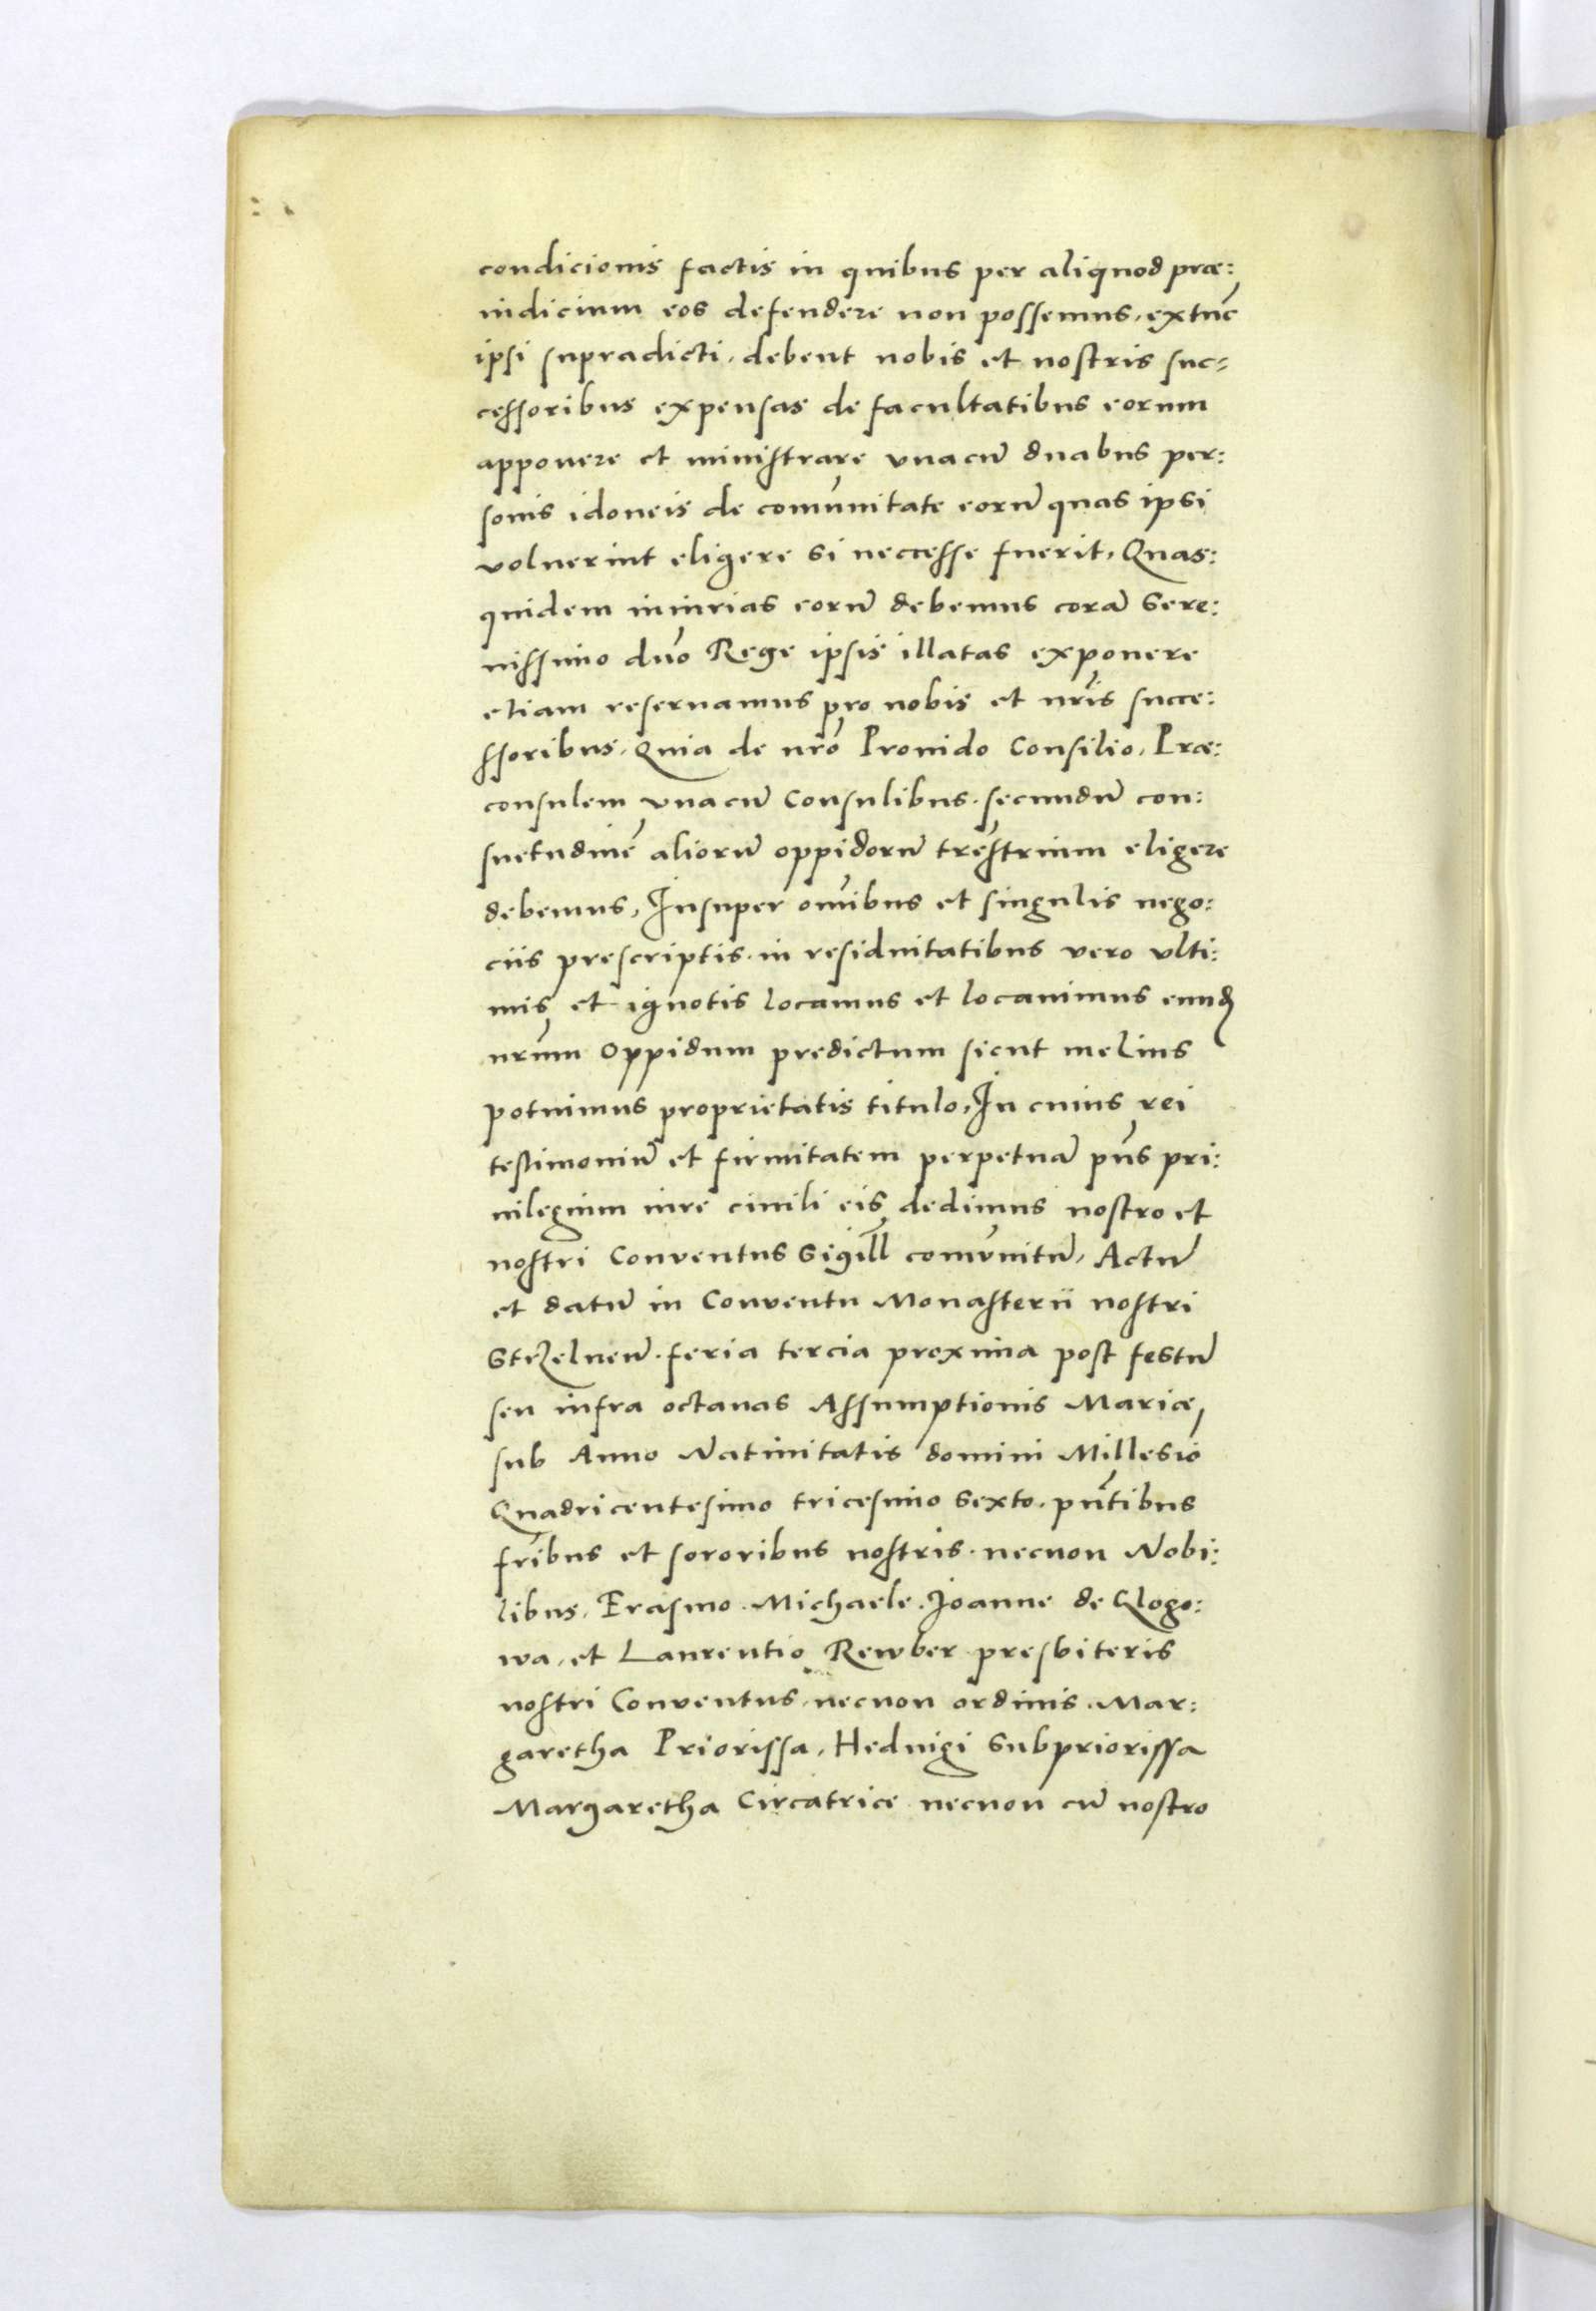 condicionis factis in quibus per aliquod præ:
iudicium eos defendere non possemus, extūc
ipsi supradicti, debent nobis et nostris suc:
cessoribus expensas de facultatibus eorum
apponere et ministrare vnacū duabus per:
sonis idoneis de comūnitate eorū quas ipsi
voluerint eligere si neccesse fuerit, Quas:
quidem iniurias eorū debemus corā Sere:
nissimo dño Rege ipsis illatas exponere
etiam reseruamus pro nobis et nr̄is succe:
ssoribus, Quia de nr̄o Prouido Consilio, Præ:
consulem vnacū Consulibus. secundū con:
suetudinē aliorū oppidorū tr̄estrium eligere
debemus, Insuper om̄ibus et singulis nego:
ciis prescriptis. in residuitatibus vero vlti:
mis, et ignotis locamus et locauimus eund̄
nr̄um Oppidum predictum sicut melius
potuimus proprietatis titulo, In cuius rei
testimoniū et firmitatem perpetuā pn̄s pri:
uilegium iure ciuili eis, dedimus nostro et
nostri Conventus Sigill̄ comūnitū, Actū
et datū in Conventu Monasterii nostri
Strzelnen̄. feria tercia proxima post festū
seu infra octauas Assumptionis Mariæ,
sub Anno Natiuitatis domini Millesīo
Quadricentesimo tricesimo Sexto, pn̄tibus
fr̄ibus et sororibus nostris. necnon Nobi:
libus, Erasmo. Michaele. Joanne de Glogo:
wa, et Laurentio Rewber presbiteris
nostri Conventus, necnon ordinis. Mar:
garetha Priorissa, Heduigi Subpriorissa
Margaretha Circatrice necnon cū nostro